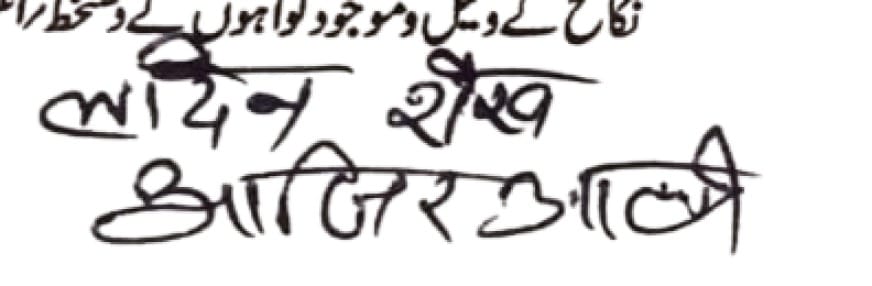 نکاح کے وکیل و موجود گواہوں کے دستخط
लादेन शेख
आजिर आली